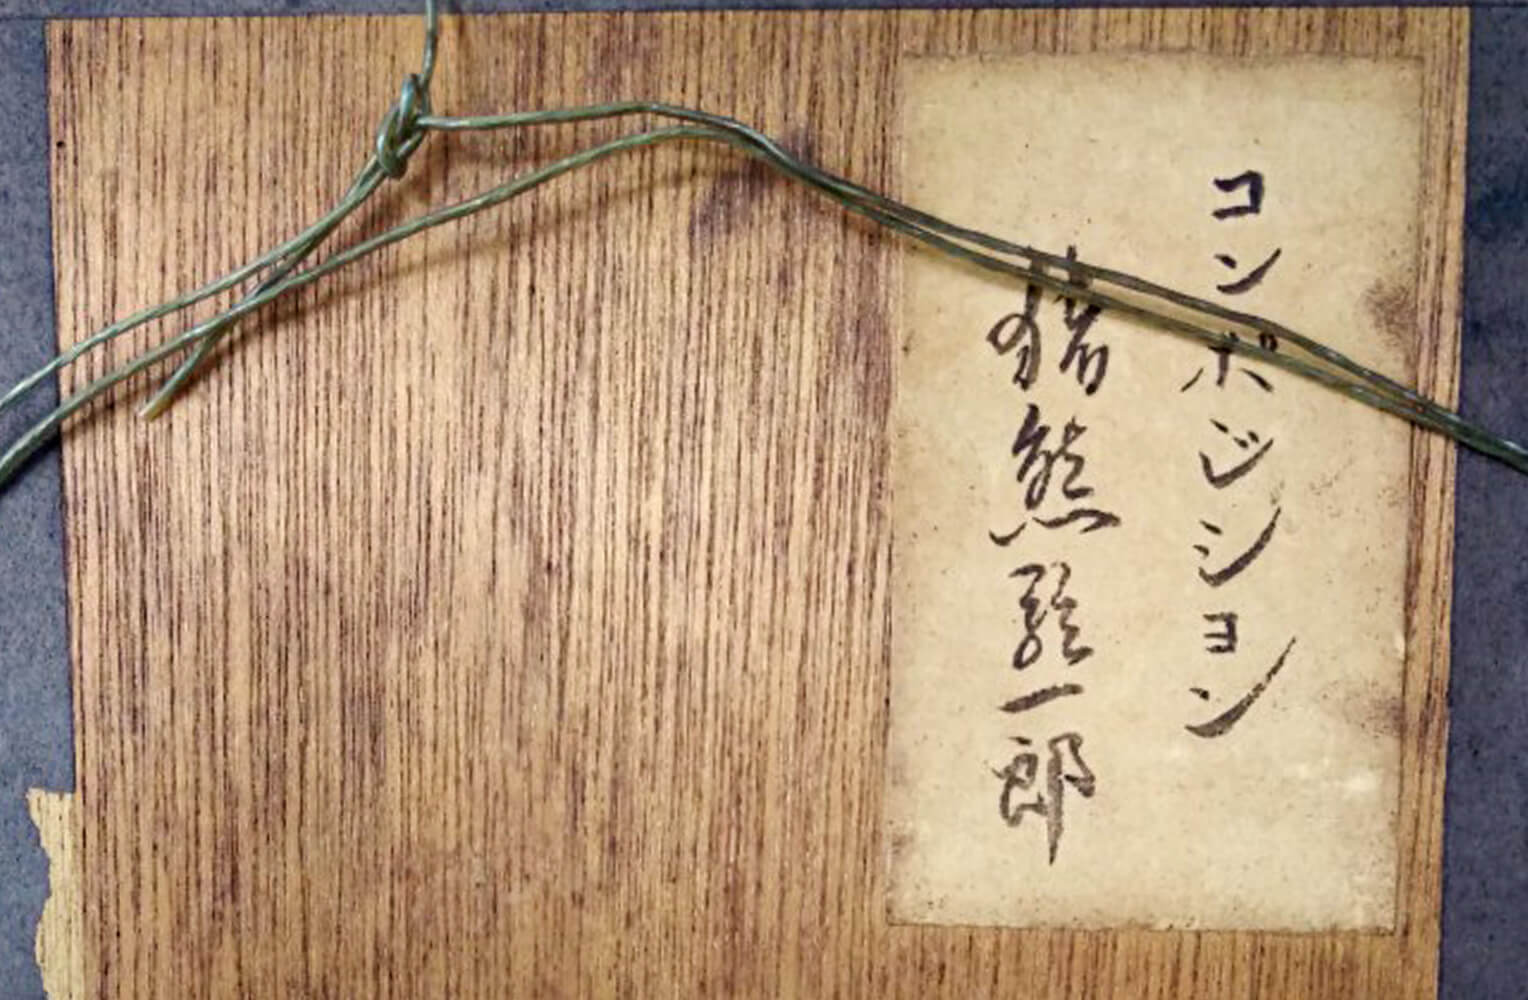 コンポジション
猪熊弦一郎